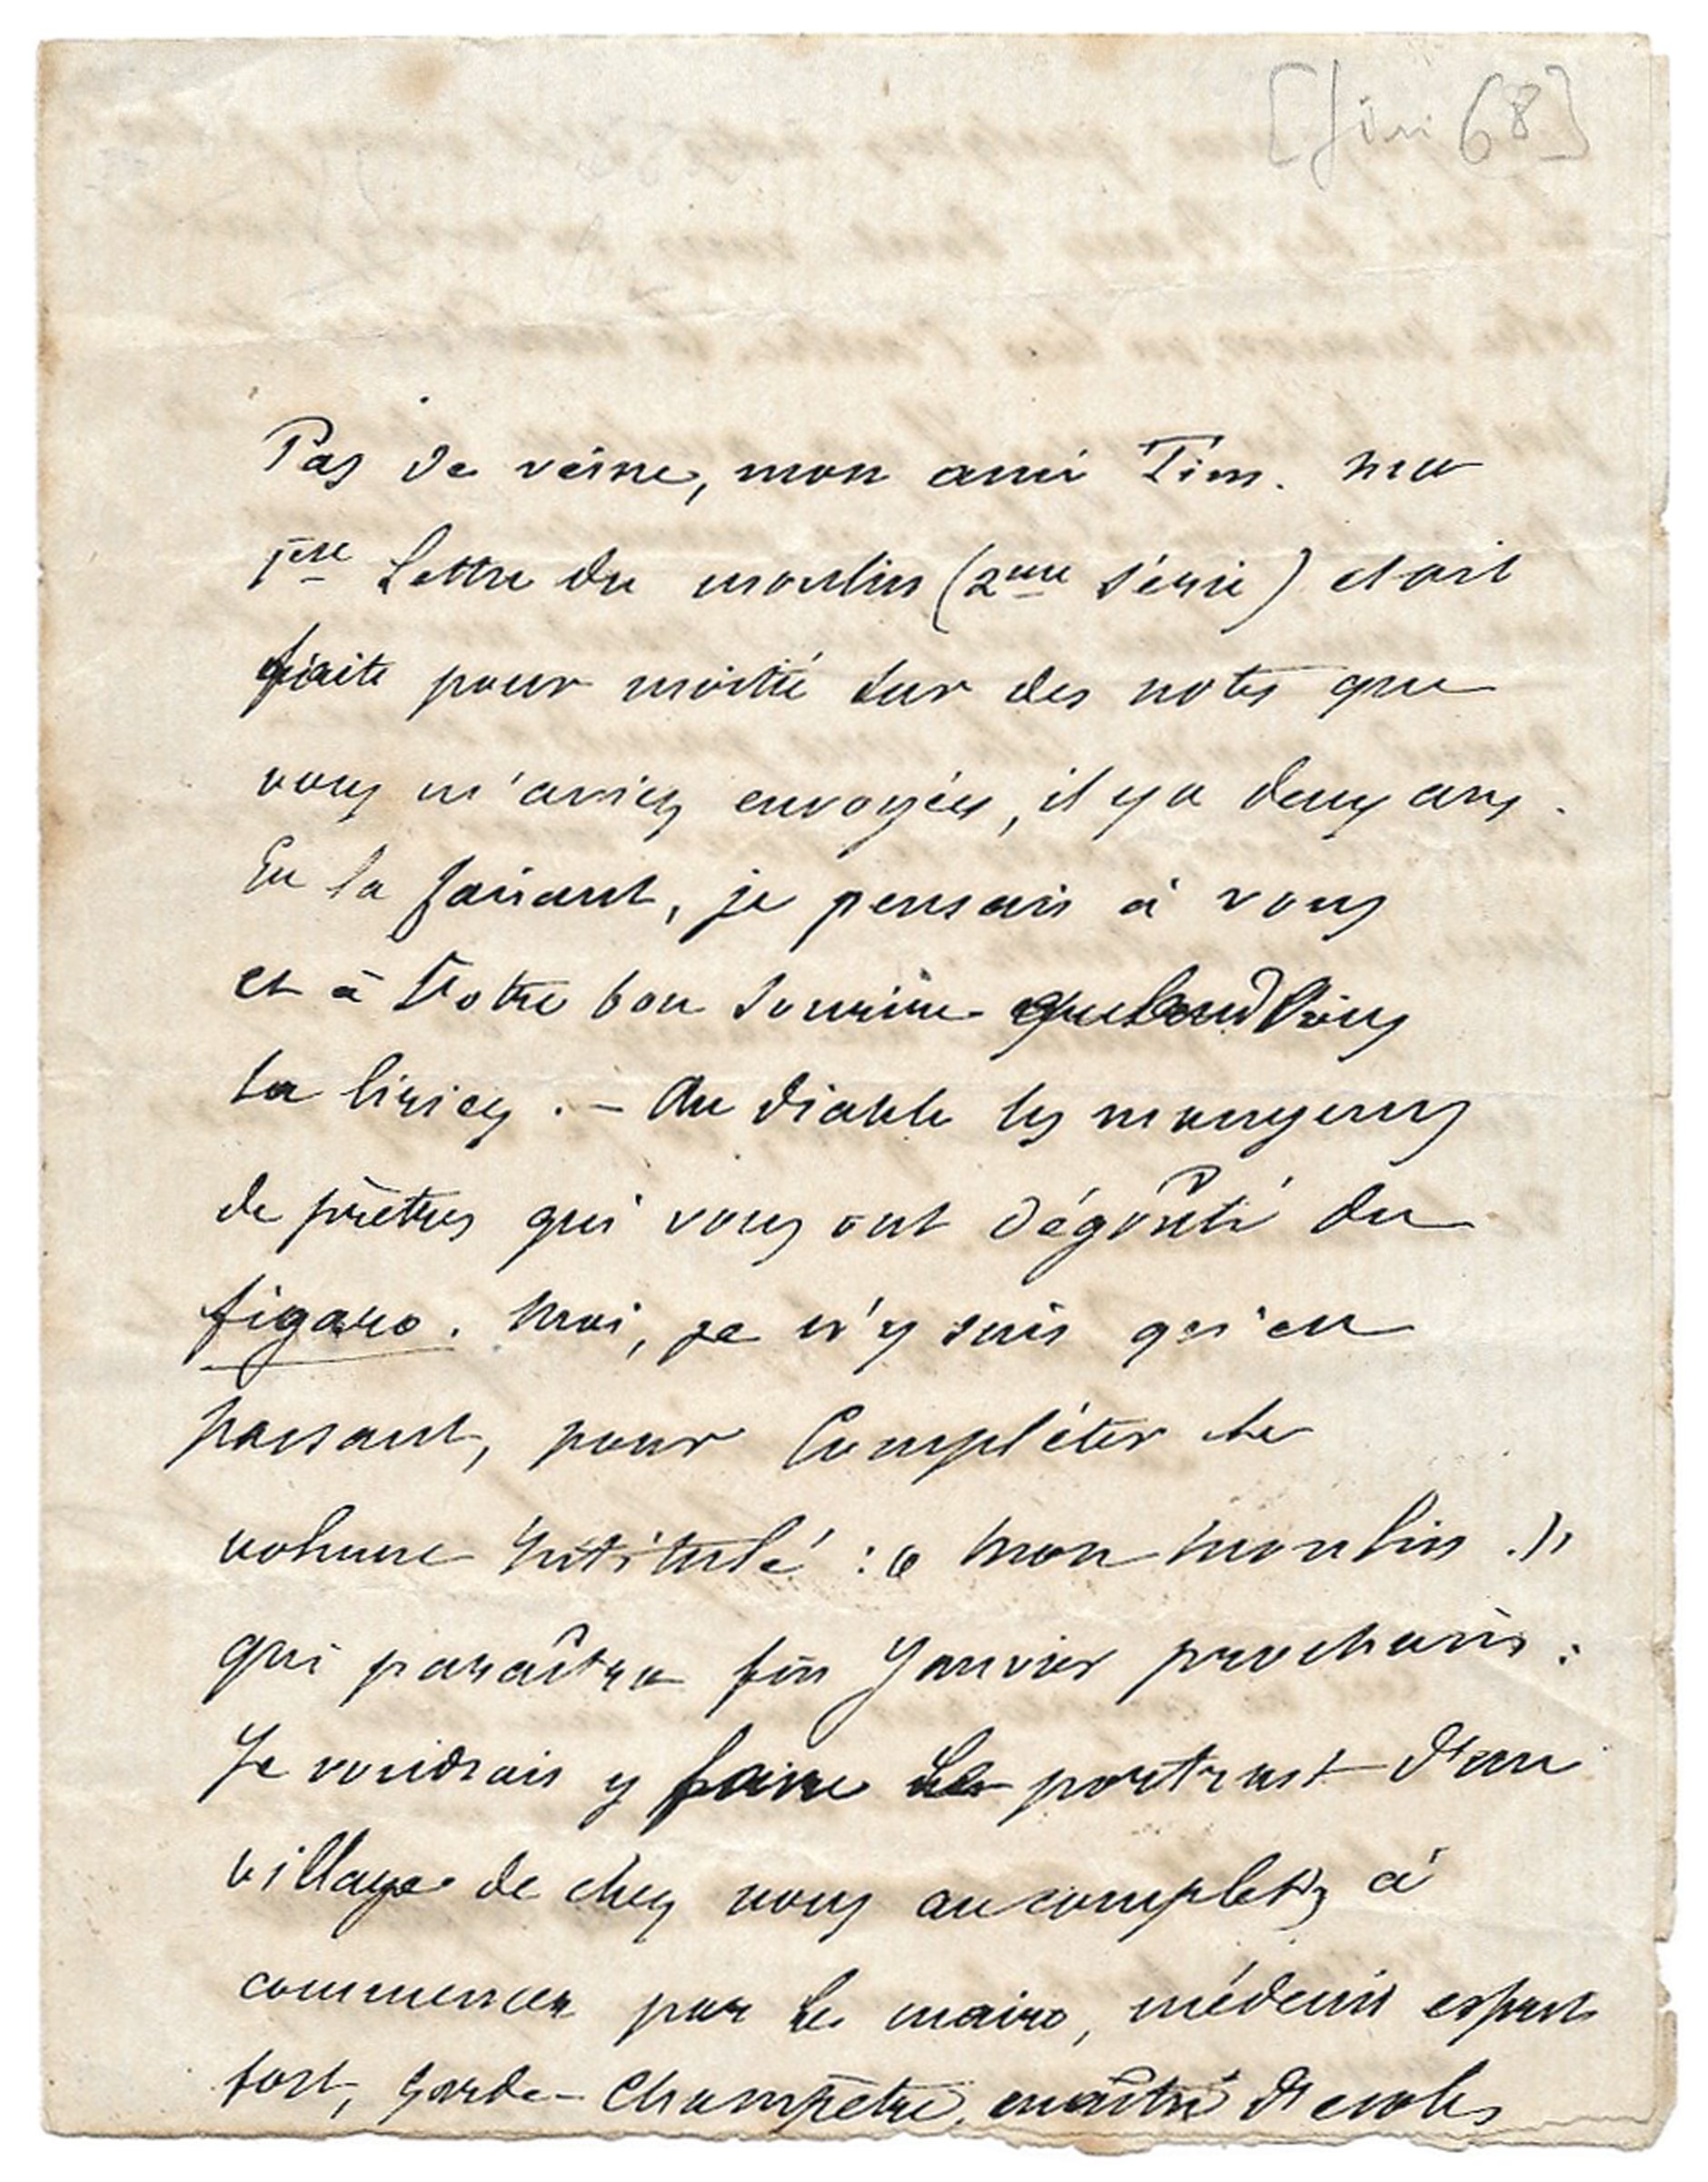 [Juin 68]
Pas de veine, mon ami Tim. ma
1ere Lettre du moulin (2eme série) etait
faite pour moitié sur des notes que
vous m'aviez envoyées, il y a deux ans.
En la faisant, je pensais à vous
et à votre bon sourire quand vous
la liriez. – Au diable les mangeurs
de prêtres qui vous ont dégoûté du
figaro. Moi, je n'y suis qu'en
passant, pour Compléter le
volume intitulé : « Mon Moulin. »
qui paraîtra fin Janvier prochain :
Je voudrais y faire le portrait d'un
village de chez nous au complet, à
commencer par le maire, médecin esprit
fort, garde-Champêtre, maître d'école,